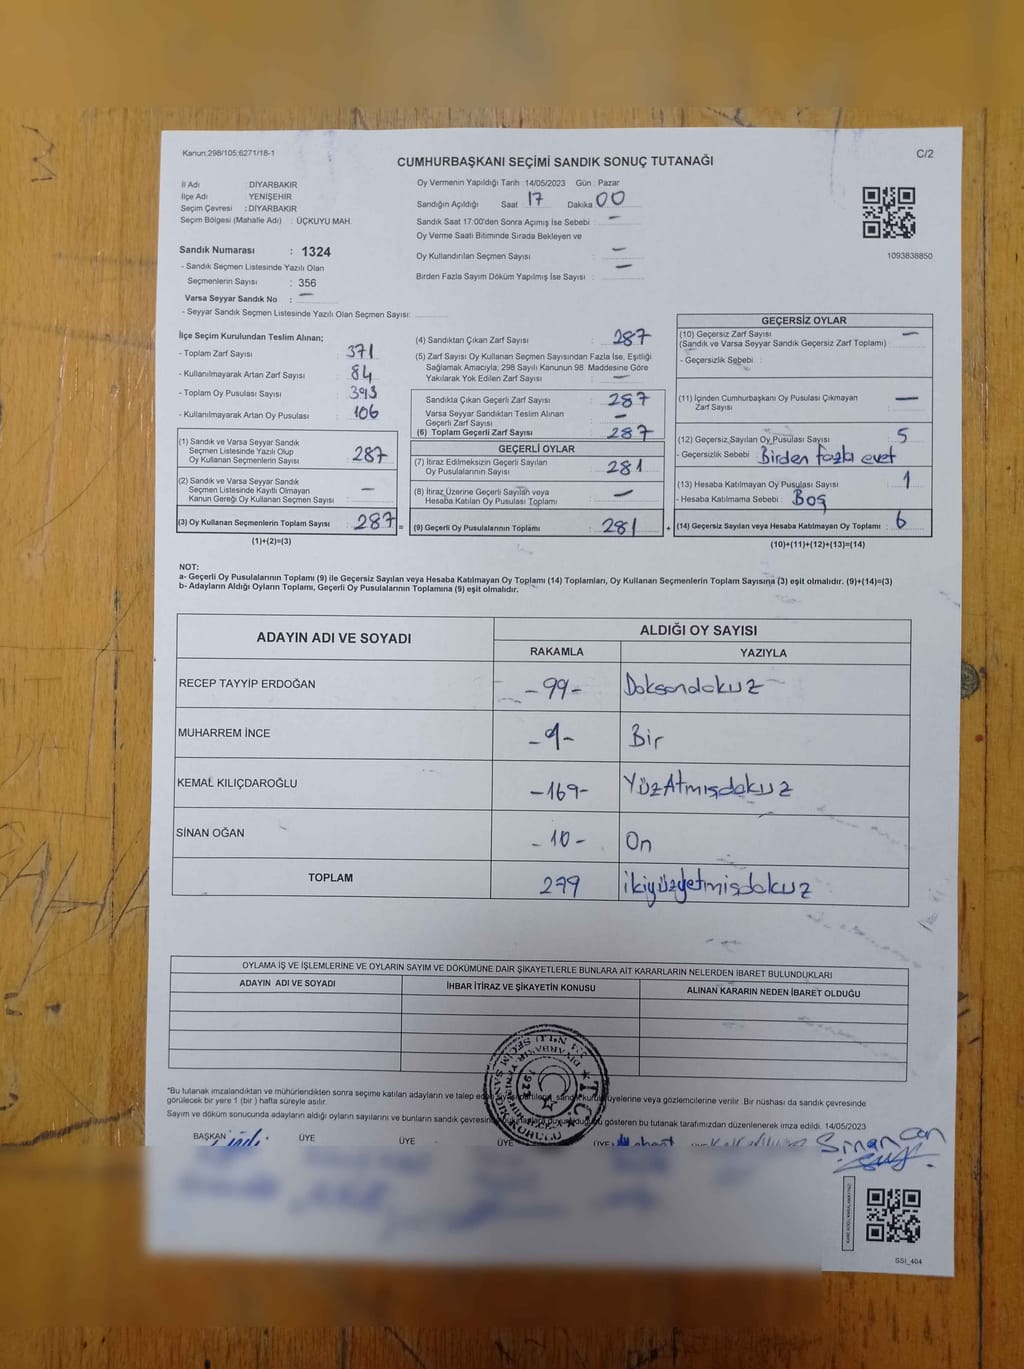 Kanun:298/105;6271/18-1
C/2
CUMHURBAŞKANI SEÇİMİ SANDIK SONUÇ TUTANAĞI
İl Adı DİYARBAKIR
İlçe Adı YENİŞEHİR
Seçim Çevresi : DİYARBAKIR
Seçim Bölgesi (Mahalle Adı) : ÜÇKUYU MAH.
Sandık Numarası : 1324
- Sandık Seçmen Listesinde Yazılı Olan
Seçmenlerin Sayısı : 356
Varsa Seyyar Sandık No : —
- Seyyar Sandık Seçmen Listesinde Yazılı Olan Seçmen Sayısı:
Oy Vermenin Yapıldığı Tarih :14/05/2023 Gün : Pazar
Sandığın Açıldığı Saat 17 Dakika 00
Sandık Saat 17:00'den Sonra Açımış İse Sebebi : —
Oy Verme Saati Bitiminde Sırada Bekleyen ve
Oy Kullandırılan Seçmen Sayısı : —
Birden Fazla Sayım Döküm Yapılmış İse Sayısı : —
1093838850
İlçe Seçim Kurulundan Teslim Alınan;
- Toplam Zarf Sayısı : 371
- Kullanılmayarak Artan Zarf Sayısı : 84
- Toplam Oy Pusulası Sayısı : 393
- Kullanılmayarak Artan Oy Pusulası : 106
(1) Sandık ve Varsa Seyyar Sandık
Seçmen Listesinde Yazılı Olup
Oy Kullanan Seçmenlerin Sayısı : 287
(2) Sandık ve Varsa Seyyar Sandık
Seçmen Listesinde Kayıtlı Olmayan
Kanun Gereği Oy Kullanan Seçmen Sayısı : —
(3) Oy Kullanan Seçmenlerin Toplam Sayısı : 287 =
(1)+(2)=(3)
(4) Sandıktan Çıkan Zarf Sayısı : 287
(5) Zarf Sayısı Oy Kullanan Seçmen Sayısından Fazla İse, Eşitliği
Sağlamak Amacıyla; 298 Sayılı Kanunun 98. Maddesine Göre
Yakılarak Yok Edilen Zarf Sayısı : —
Sandıkta Çıkan Geçerli Zarf Sayısı : 287
Varsa Seyyar Sandıktan Teslim Alınan
Geçerli Zarf Sayısı : —
(6) Toplam Geçerli Zarf Sayısı : 287
GEÇERLİ OYLAR
(7) İtiraz Edilmeksizin Geçerli Sayılan
Oy Pusulalarının Sayısı : 281
(8) İtiraz Üzerine Geçerli Sayılan veya
Hesaba Katılan Oy Pusulası Toplamı : —
(9) Geçerli Oy Pusulalarının Toplamı : 281 +
GEÇERSİZ OYLAR
(10) Geçersiz Zarf Sayısı : —
(Sandık ve Varsa Seyyar Sandık Geçersiz Zarf Toplamı)
- Geçersizlik Sebebi :
(11) İçinden Cumhurbaşkanı Oy Pusulası Çıkmayan
Zarf Sayısı : —
(12) Geçersiz Sayılan Oy Pusulası Sayısı : 5
- Geçersizlik Sebebi : Birden fazla evet
(13) Hesaba Katılmayan Oy Pusulası Sayısı : 1
- Hesaba Katılmama Sebebi : Boş
(14) Geçersiz Sayılan veya Hesaba Katılmayan Oy Toplamı : 6
(10)+(11)+(12)+(13)=(14)
NOT:
a- Geçerli Oy Pusulalarının Toplamı (9) ile Geçersiz Sayılan veya Hesaba Katılmayan Oy Toplamı (14) Toplamları, Oy Kullanan Seçmenlerin Toplam Sayısına (3) eşit olmalıdır. (9)+(14)=(3)
b- Adayların Aldığı Oyların Toplamı, Geçerli Oy Pusulalarının Toplamına (9) eşit olmalıdır.
ADAYIN ADI VE SOYADI ALDIĞI OY SAYISI
RAKAMLA YAZIYLA
RECEP TAYYİP ERDOĞAN -99- Doksandokuz
MUHARREM İNCE -1- Bir
KEMAL KILIÇDAROĞLU -169- YüzAtmışdokuz
SİNAN OĞAN -10- On
TOPLAM 279 ikiyüzyetmişdokuz
OYLAMA İŞ VE İŞLEMLERİNE VE OYLARIN SAYIM VE DÖKÜMÜNE DAİR ŞİKAYETLERLE BUNLARA AİT KARARLARIN NELERDEN İBARET BULUNDUKLARI
ADAYIN ADI VE SOYADI İHBAR İTİRAZ VE ŞİKAYETİN KONUSU ALINAN KARARIN NEDEN İBARET OLDUĞU
*Bu tutanak imzalandıktan ve mühürlendikten sonra seçime katılan adayların ve talep eden sandık kurulu üyelerine veya gözlemcilerine verilir. Bir nüshası da sandık çevresinde
görülecek bir yere 1 (bir ) hafta süreyle asılır.
Sayım ve döküm sonucunda adayların aldığı oyların sayılarını ve bunların sandık çevresine gösteren bu tutanak tarafımızdan düzenlenerek imza edildi. 14/05/2023
BAŞKAN ÜYE ÜYE ÜYE ÜYE Sinan Can
T.C.
SSİ_404